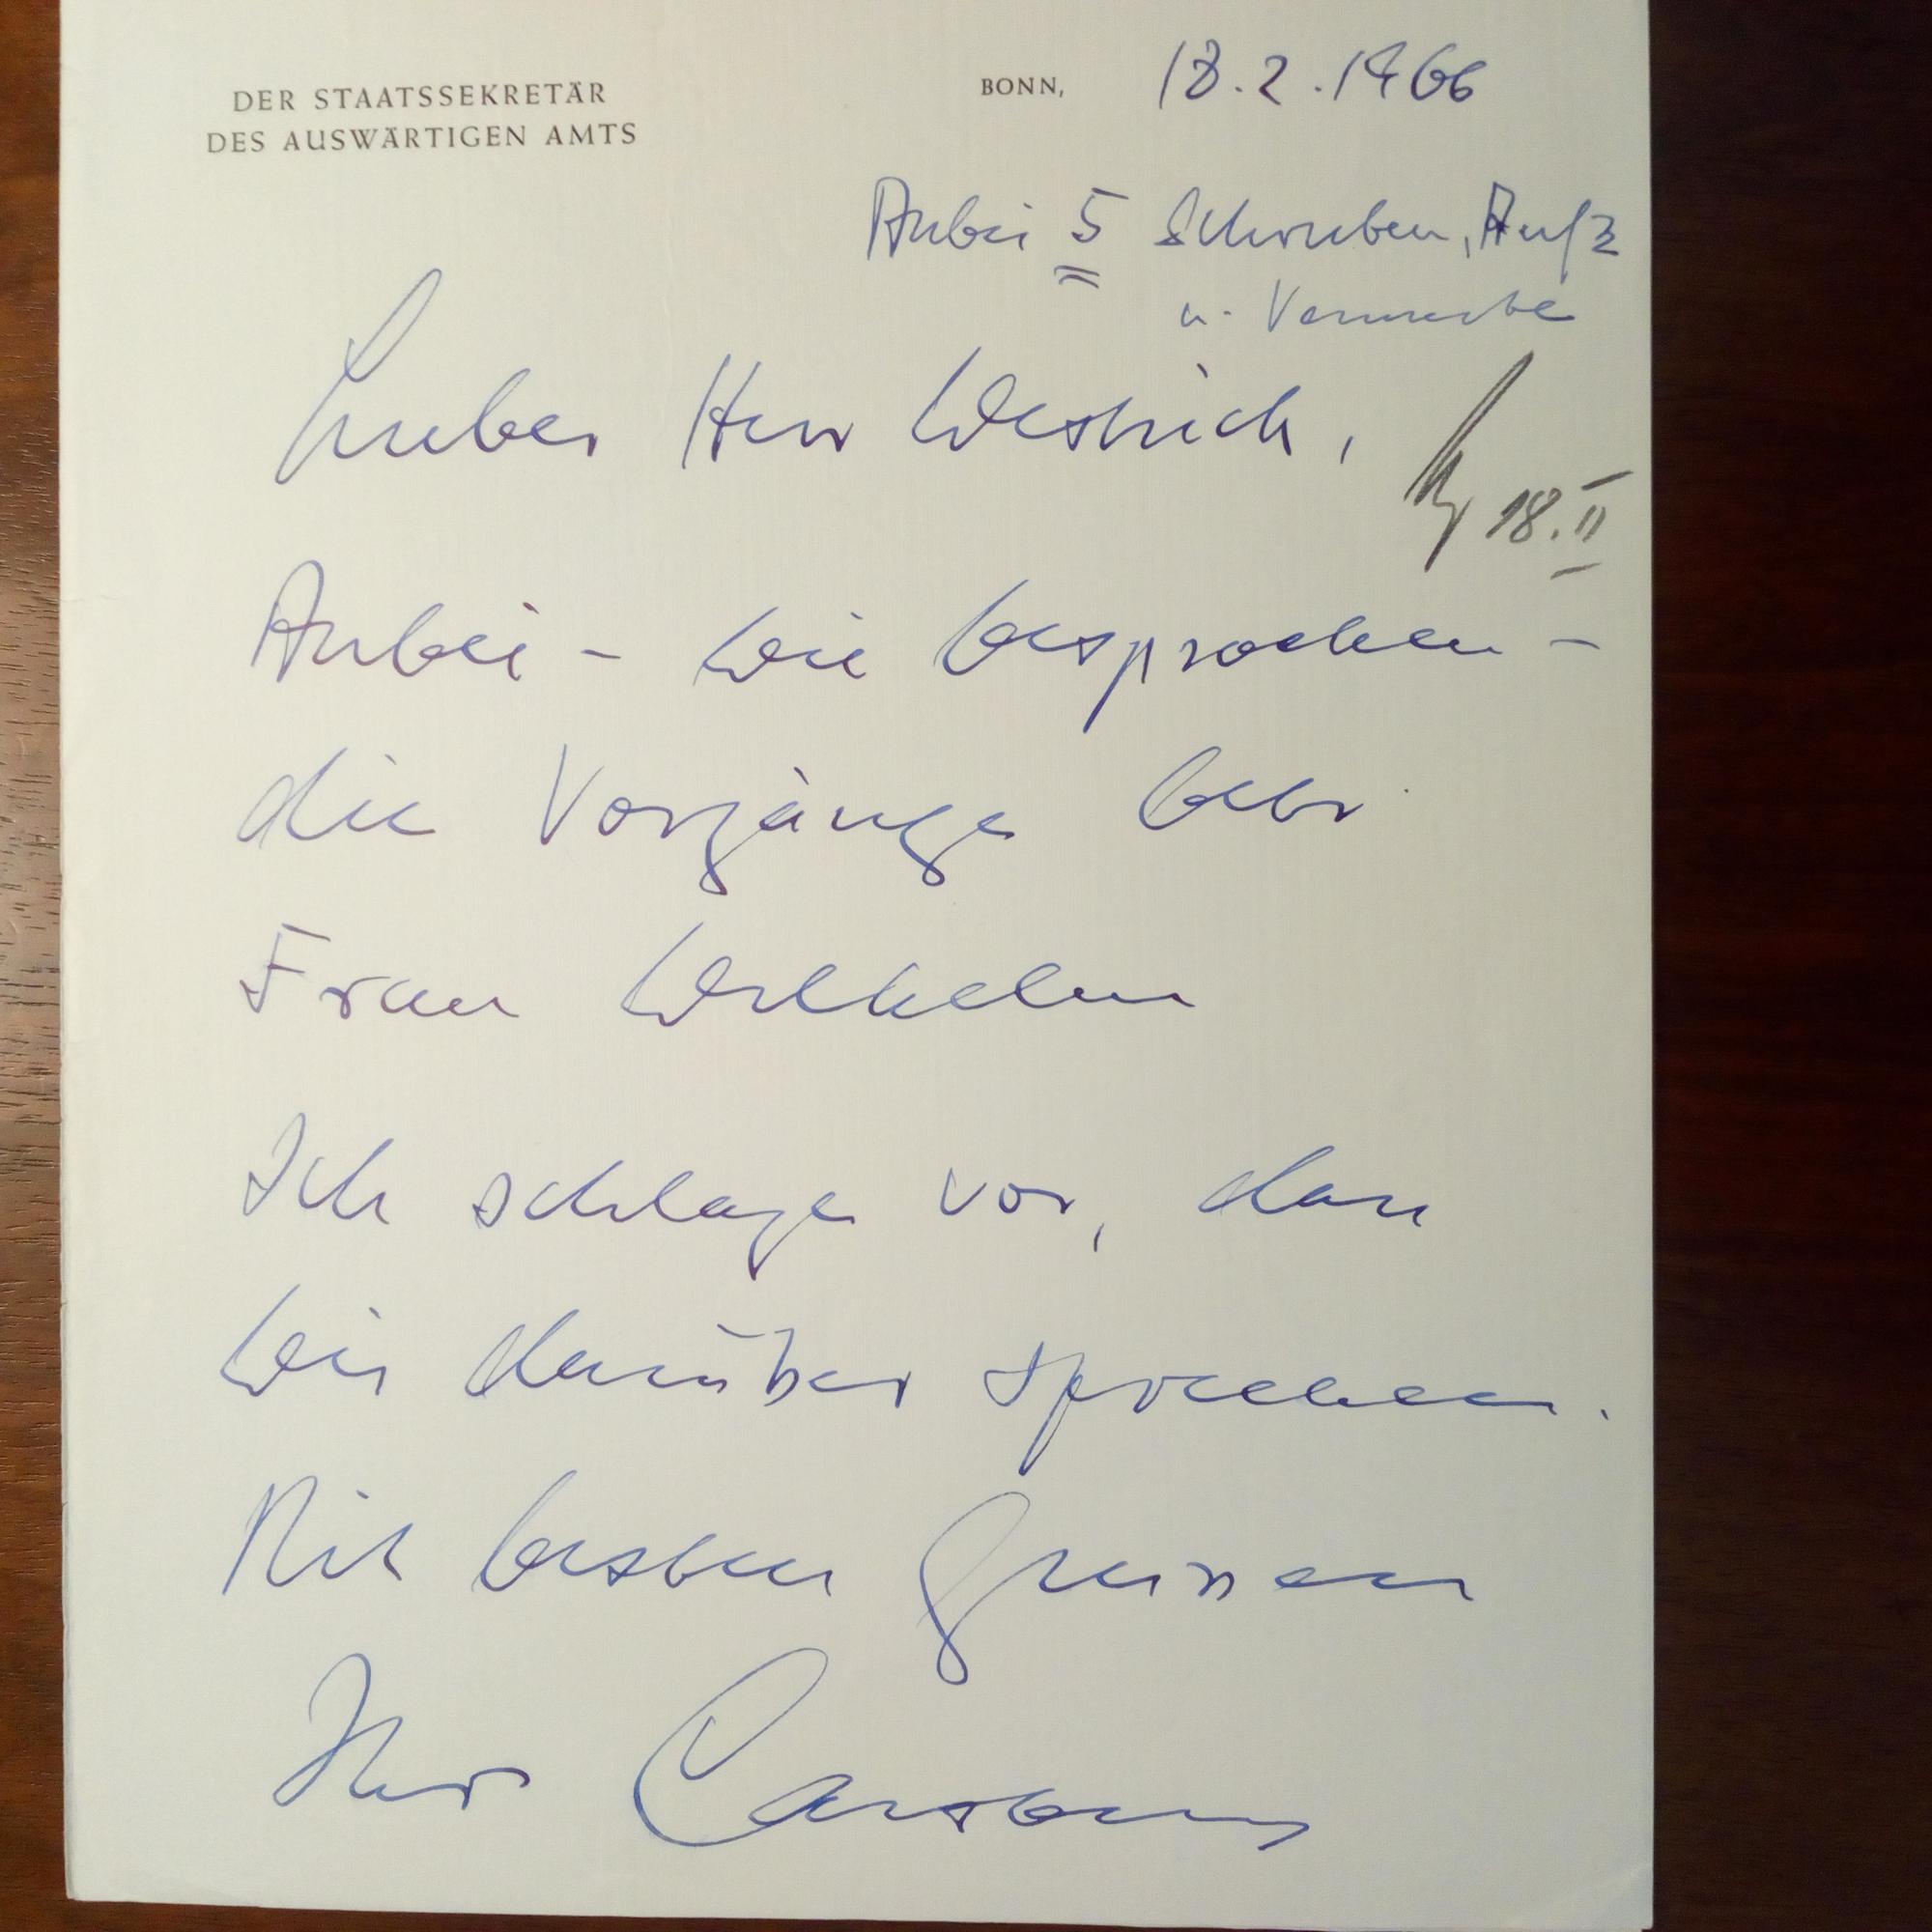 DER STAATSSEKRETÄR
DES AUSWÄRTIGEN AMTS
BONN, 18.2.1966
Anbei 5 Schreiben, Aufz
u. Vermerke
Lieber Herr Westrick,
18.II
Anbei - wie besprochen -
die Vorgänge betr.
Frau Wilhelm
Ich schlage vor, dass
wir darüber sprechen.
Mit besten Grüssen
Ihr Carstens